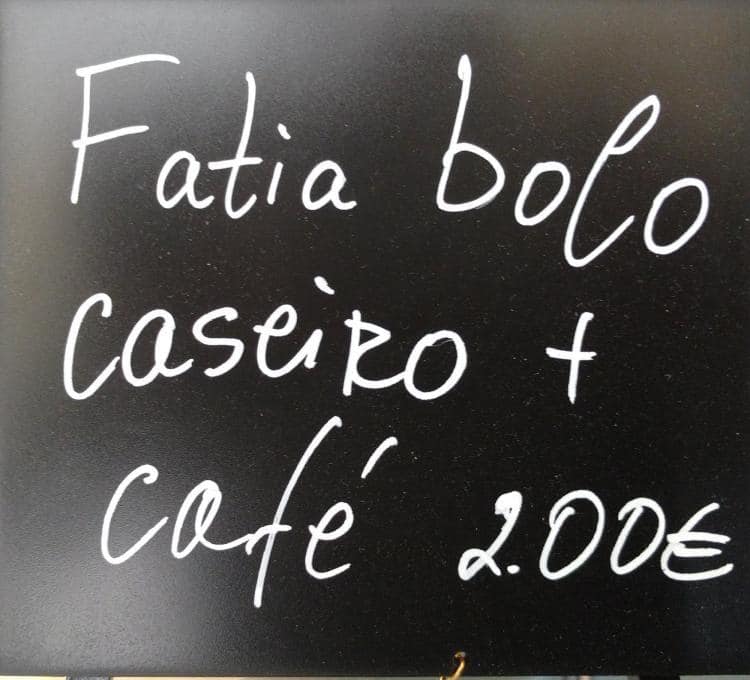 Fatia bolo
caseiro +
café 2.00€